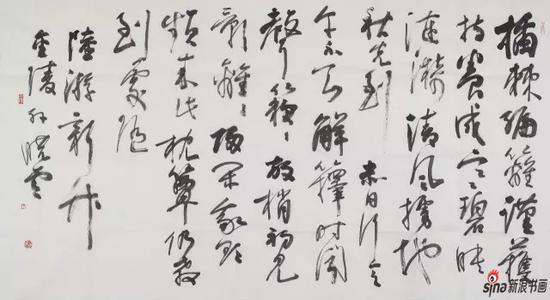 插棘編籬謹護
持養成寒碧映
漣漪清風掠地
秋先到赤日行天
午不知解籜時聞
聲簌簌放梢初見
影離離歸閑我欲
頻來此枕簟仍教
到處隨
陸游新竹
金陵孫曉雲
sina新浪书画